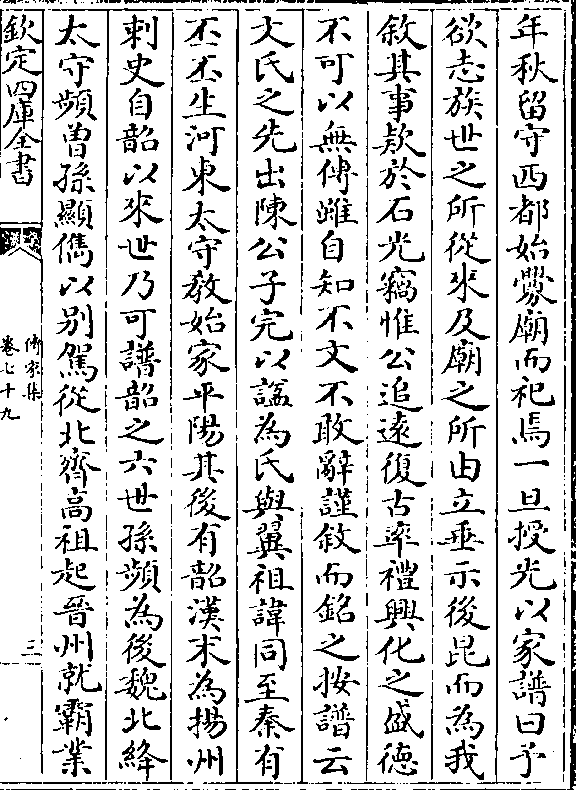 年秋留守西都始釁廟而祀焉一旦授光以家譜曰予
欲志族世之所從來及廟之所由立垂示後昆而為我
敘其事欵於石光竊惟公追遠復古率禮興化之盛德
不可以無傳雖自知不文不敢辭謹敘而銘之按譜云
文氏之先出陳公子完以諡為氏與翼祖諱同至秦有
丕丕生河東太守敎始家平陽其後有韶漢末為揚州
刺史自韶以來世乃可譜韶之六世孫頻為後魏北絳
太守頻曾孫顯儁以别駕從北齊高祖起晉州就霸業
欽定四庫全書
傳家集
卷七十九
三